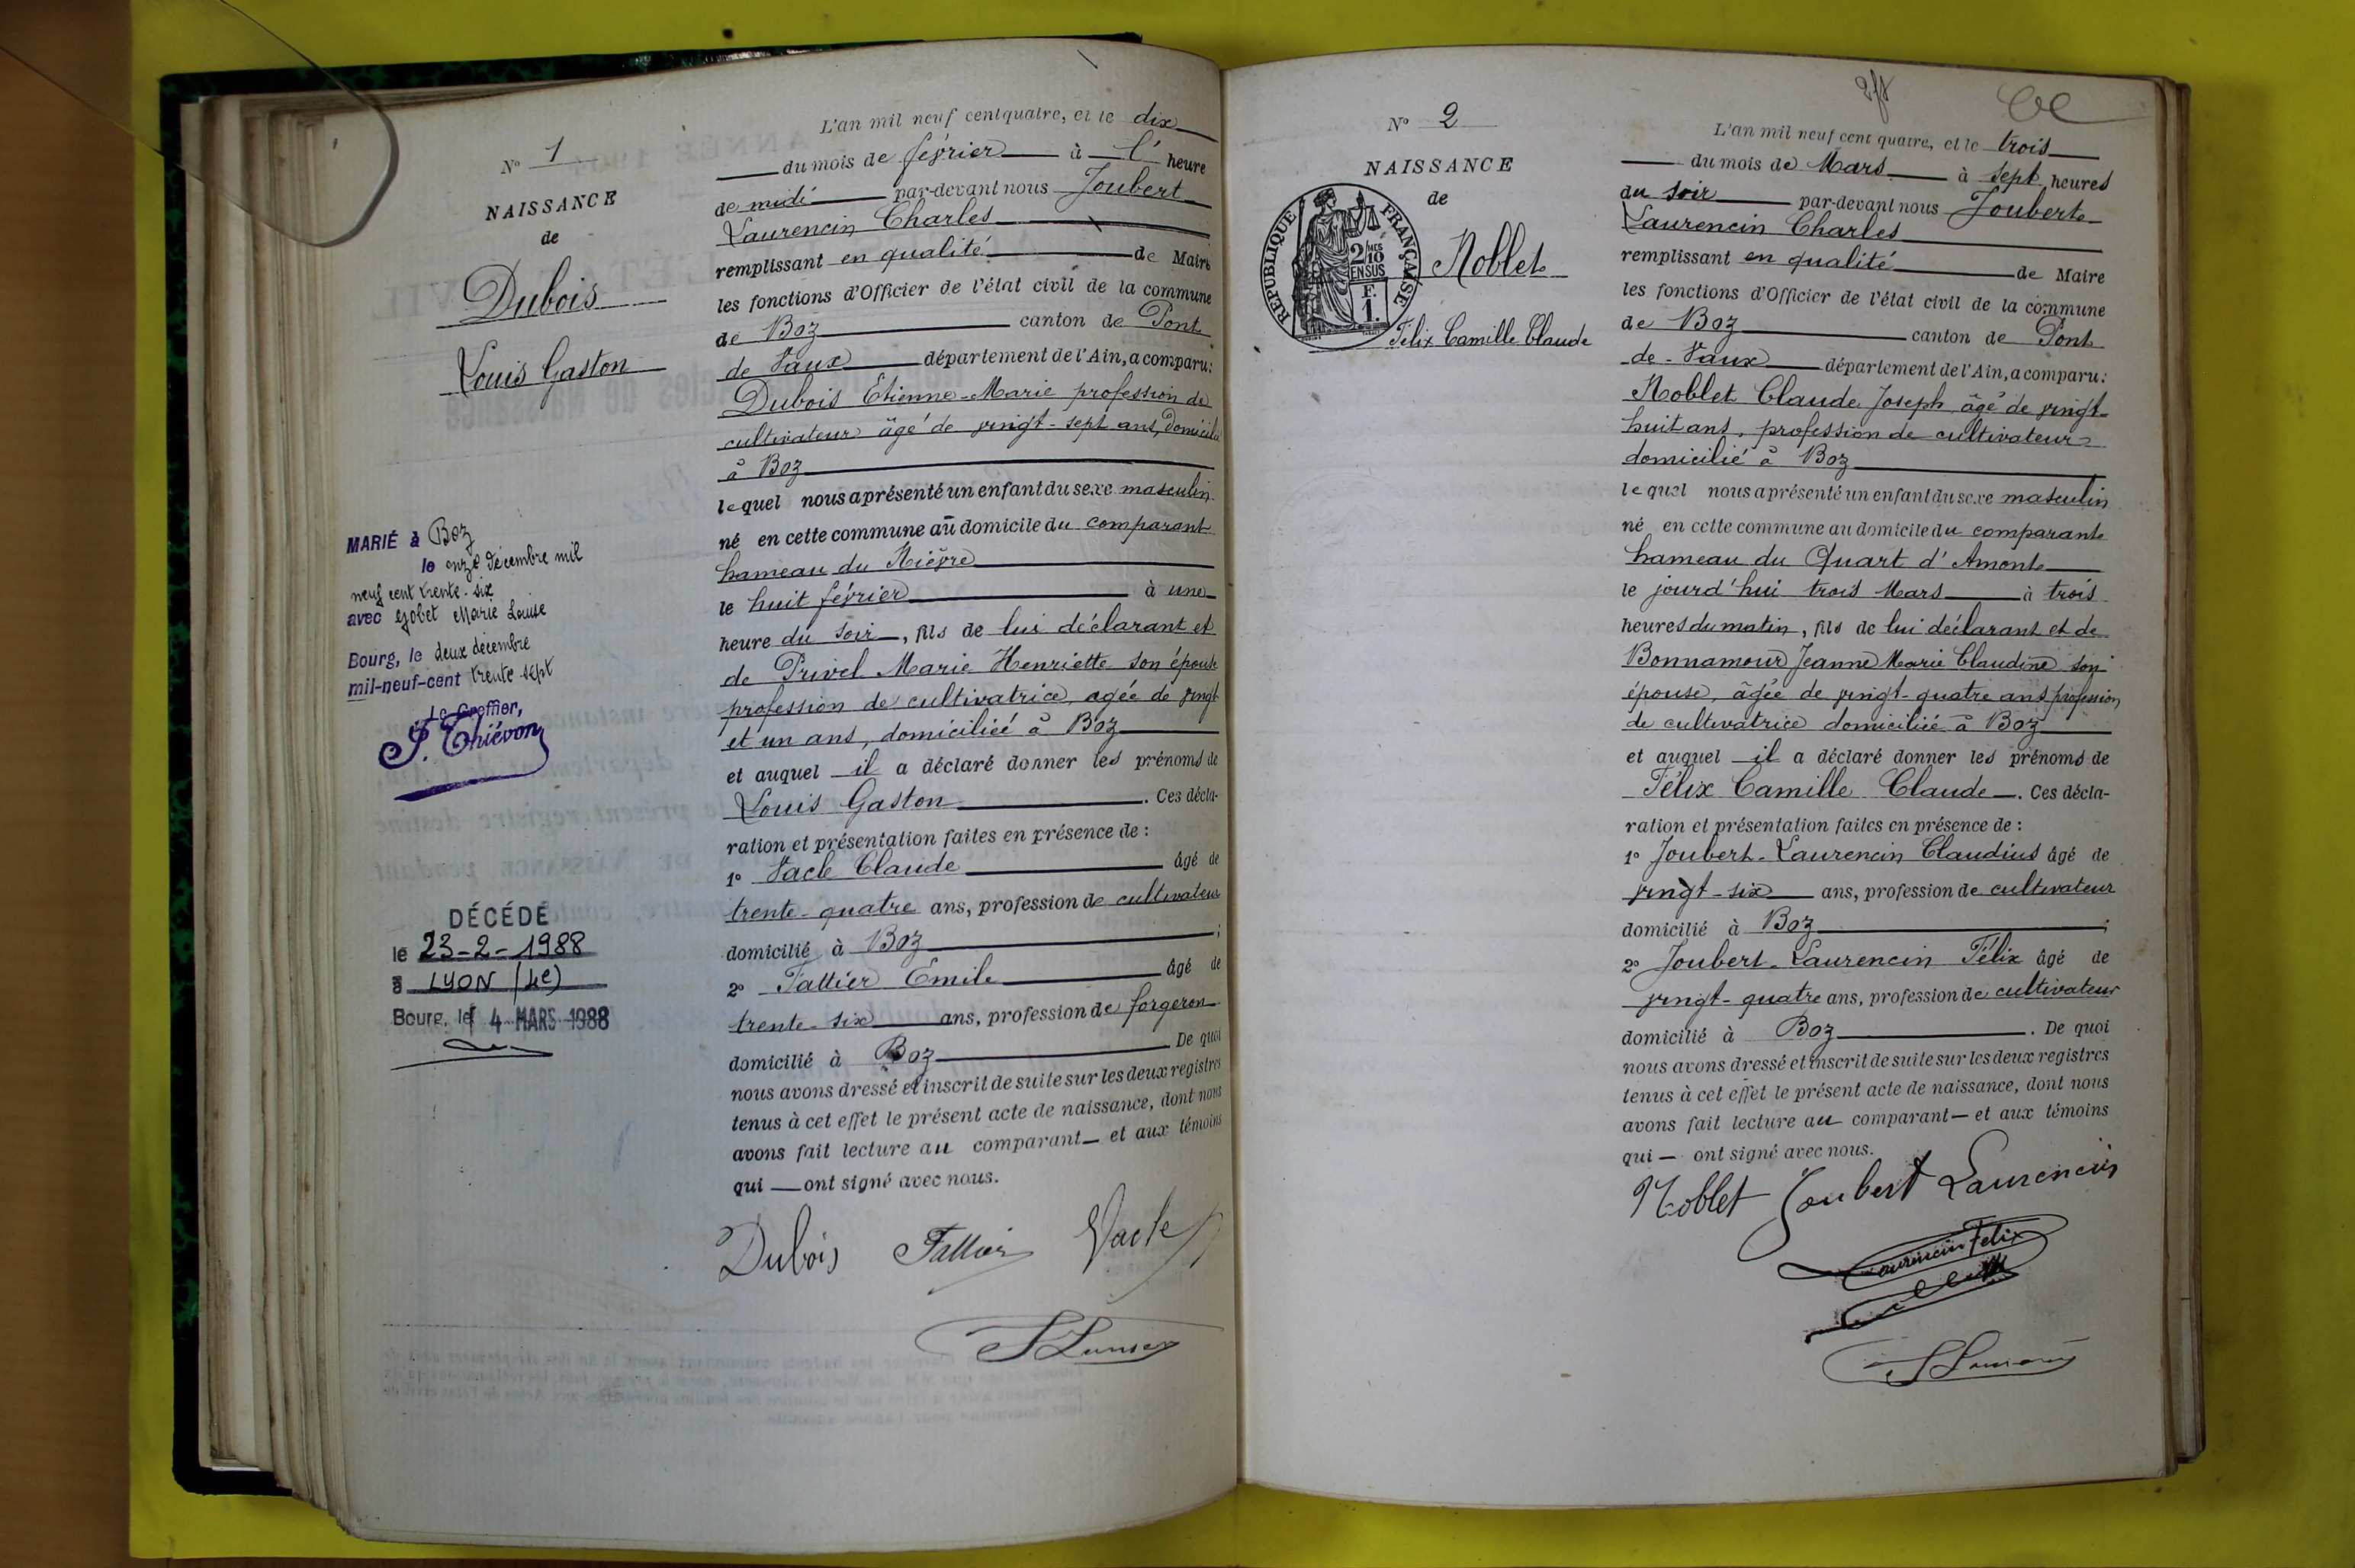 N° 1
NAISSANCE
de
Dubois
Louis Gaston
MARIÉ à Boz
le onze décembre mil
neuf cent trente-six
avec Gobet Marie Louise
Bourg, le deux décembre
mil-neuf-cent trente sept
Le Greffier,
P. Thiévon
DÉCÉDÉ
le 23-2-1988
à LYON (4e)
Bourg, le 4 MARS 1988
L'an mil neuf cent quatre, et le dix
du mois de février à l' heure
de midi par-devant nous Joubert
Laurencin Charles
remplissant en qualité de Maire
les fonctions d'Officier de l'état civil de la commune
de Boz canton de Pont
de Vaux département de l'Ain, a comparu:
Dubois Etienne-Marie profession de
cultivateur âgé de vingt-sept ans, domicilié
à Boz
lequel nous a présenté un enfant du sexe masculin
né en cette commune au domicile du comparant
hameau du Nièvre
le huit février à une
heure du soir, fils de lui déclarant et
de Privel Marie Henriette son épouse
profession de cultivatrice, agée de vingt
et un ans, domiciliée à Boz
et auquel il a déclaré donner les prénoms de
Louis Gaston. Ces décla-
ration et présentation faites en présence de :
1° Vacle Claude âgé de
trente-quatre ans, profession de cultivateur
domicilié à Boz ;
2° Tattier Emile âgé de
trente-six ans, profession de forgeron
domicilié à Boz De quoi
nous avons dressé et inscrit de suite sur les deux registres
tenus à cet effet le présent acte de naissance, dont nous
avons fait lecture au comparant et aux témoins
qui ont signé avec nous.
Dubois Tattier Vacle
N° 2
NAISSANCE
de
RÉPUBLIQUE FRANÇAISE
2/10
EN SUS
F.
1.
Noblet
Félix Camille Claude
L'an mil neuf cent quatre, et le trois
du mois de Mars à sept heures
du soir par-devant nous Joubert
Laurencin Charles
remplissant en qualité de Maire
les fonctions d'Officier de l'état civil de la commune
de Boz canton de Pont
de-Vaux département de l'Ain, a comparu:
Noblet Claude Joseph âgé de vingt
huit ans, profession de cultivateur
domicilié à Boz
lequel nous a présenté un enfant du sexe masculin
né en cette commune au domicile du comparant
hameau du Quart d'Amont
le jourd'hui trois Mars à trois
heures du matin, fils de lui déclarant et de
Bonnamour Jeanne Marie Claudine son
épouse, âgée de vingt-quatre ans profession
de cultivatrice domiciliée à Boz
et auquel il a déclaré donner les prénoms de
Félix Camille Claude. Ces décla-
ration et présentation faites en présence de :
1° Joubert-Laurencin Claudius âgé de
vingt-six ans, profession de cultivateur
domicilié à Boz ;
2° Joubert-Laurencin Félix âgé de
vingt-quatre ans, profession de cultivateur
domicilié à Boz. De quoi
nous avons dressé et inscrit de suite sur les deux registres
tenus à cet effet le présent acte de naissance, dont nous
avons fait lecture au comparant et aux témoins
qui ont signé avec nous.
Noblet Joubert Laurencin
Laurencin Felix